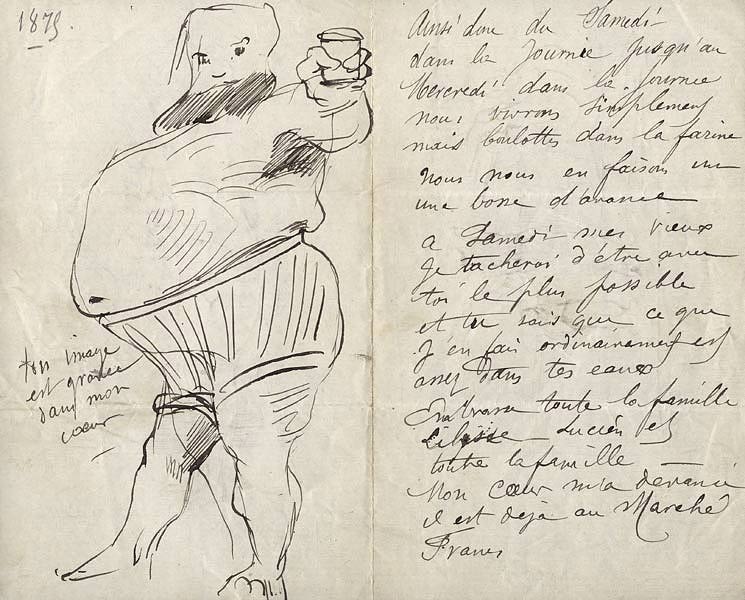 1879.
ton image
est gravée
dans mon
cœur
Ainsi donc du Samedi
dans la Journée jusqu'au
Mercredi dans la Journée
nous vivrons simplement
mais boulottes dans la farine
nous nous en faisons une
une bosse d'avance
a Samedi mes vieux
Je tacherai d'être avec
toi le plus possible
et tu sais que ce que
J'en fais ordinairement est
assez dans tes eaux
Embrasse toute la famille
Lucien et
toute la famille
Mon cœur m'a devancé
il est déjà au Marché
Francs